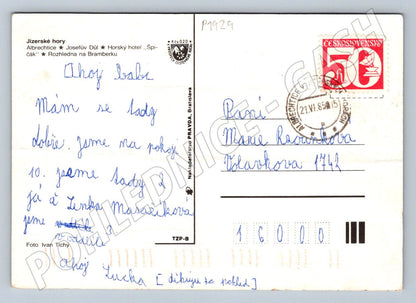 P1929
Jizerské hory
Albrechtice ★ Josefův Důl ★ Horský hotel „Špi-
čák" ★ Rozhledna na Bramberku
Ahoj Babi
Mám se tady
dobře. jsme na pokoji
10. jsme tady 2
já a Lenka Masaříková
jsme
Ahoj Lucka [děkuju za pohled]
Foto Ivan Tichý
TZP-B
Nakladateľstvo PRAVDA, Bratislava
ČESKOSLOVENSKO
50
21.VI.8
Paní
Marie
1742
16000
POHLEDNICE-CASH